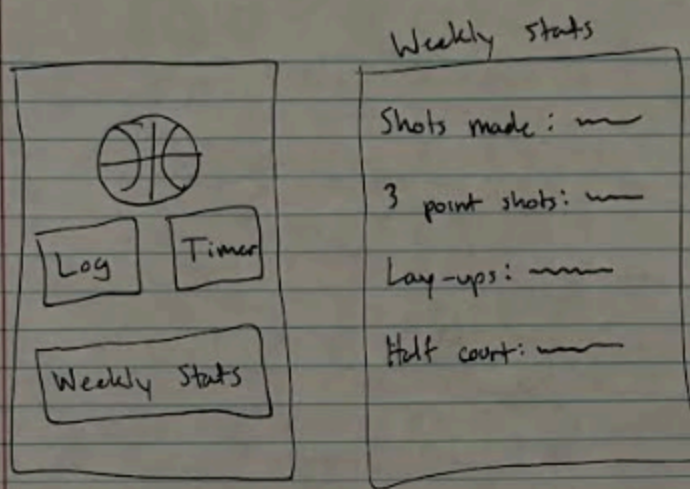 Log
Timer
Weekly Stats
Weekly Stats
Shots made:
3 point shots:
Lay-ups:
Half court: